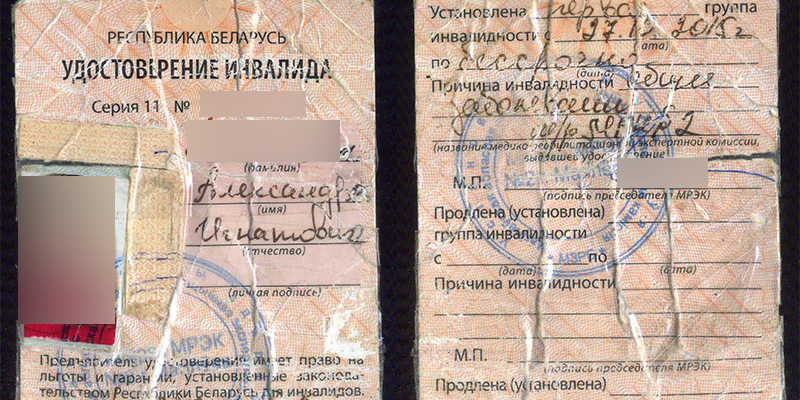 РЕСПУБЛИКА БЕЛАРУСЬ
УДОСТОВЕРЕНИЕ ИНВАЛИДА
Серия 11 №
(фамилия)
Александр
(имя)
Игнатович
(отчество)
(личная подпись)
МРЭК
Предъявитель удостоверения имеет право на
льготы и гарантии, установленные законода-
тельством Республики Беларусь для инвалидов.
Установлена перва группа
инвалидности с 27. 2015г
(дата)
по бессрочно
(дата)
Причина инвалидности общее
заболевание
МРЭК 2
(название медико-реабилитационной экспертной комиссии,
выдавшей удостоверение
М.П.
(подпись председателя МРЭК)
Продлена (установлена)
группа инвалидности
с по
(дата) (дата)
Причина инвалидности
М.П.
(подпись председателя МРЭК)
Продлена (установлена)